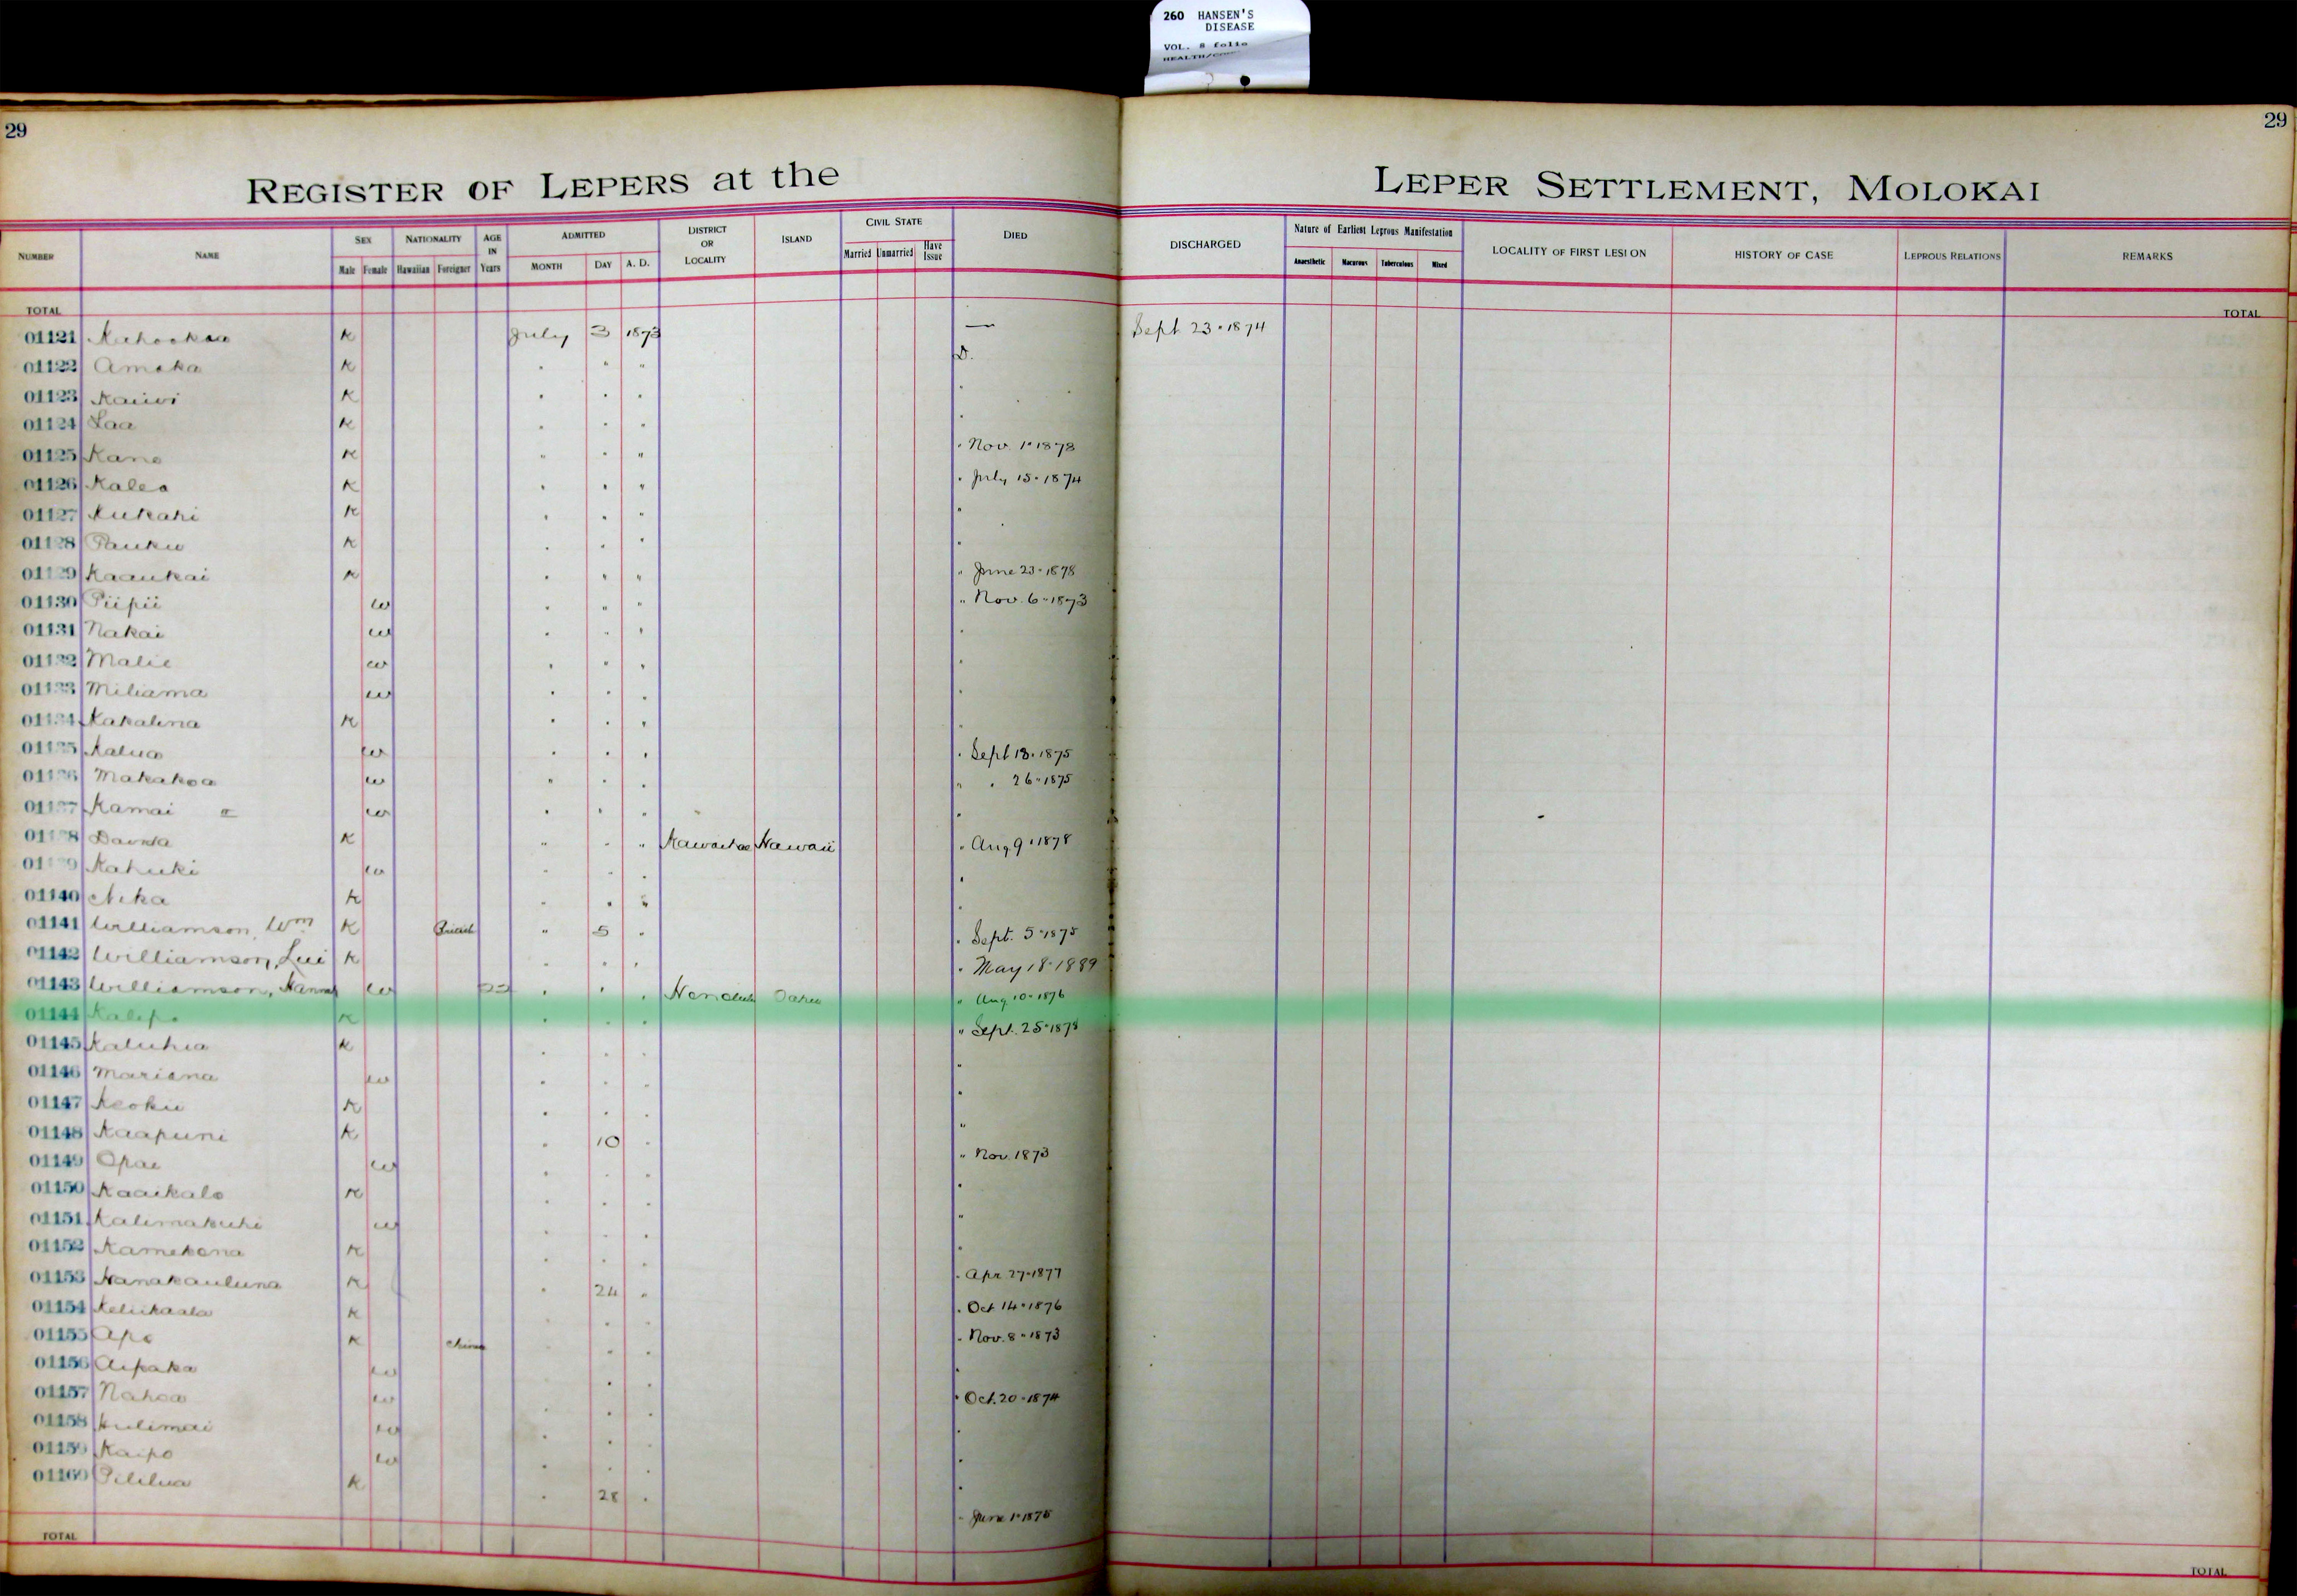 260 HANSEN'S
DISEASE
VOL. 8 folio
29
29
REGISTER OF LEPERS at the LEPER SETTLEMENT, MOLOKAI
NUMBER NAME SEX NATIONALITY AGE IN Years ADMITTED DISTRICT OR LOCALITY ISLAND CIVIL STATE DIED DISCHARGED Nature of Earliest Leprous Manifestation LOCALITY OF FIRST LESION HISTORY OF CASE LEPROUS RELATIONS REMARKS
Male Female Hawaiian Foreigner MONTH DAY A. D. Married Unmarried Have Issue Anaesthetic Macurous Tuberculous Mixed
TOTAL TOTAL
01121 K July 3 1873 — Sept 23 · 1874
01122 Amaka K " " " D.
01123 Kaiwi K " " " "
01124 Laa K " " " "
01125 Kane K " " " " Nov. 1 · 1878
01126 Kalea K " " " " July 15 · 1874
01127 Kukahi K " " " "
01128 Pauku K " " " "
01129 Kaaukai K " " " " June 23 · 1878
01130 Piipii w " " " " Nov. 6 · 1873
01131 Nakai w " " " "
01132 Malie w " " " "
01133 Miliama w " " " "
01134 Kakalina K " " " "
01135 Kalua w " " " " Sept 18 · 1875
01136 Makakoa w " " " " " 26 · 1875
01137 Kamai w " " " "
01138 K " " " Kawaihae Hawaii " Aug 9 · 1878
01139 Kahuki w " " " "
01140 Nika K " " " "
01141 Williamson, Wm K British " 5 " " Sept. 5 · 1875
01142 Williamson, Lui K " " " " May 18 · 1889
01143 Williamson, Hannah w " " " Honolulu Oahu " Aug 10 · 1876
01144 K " " " " Sept. 25 · 1878
01145 Kaluhia K " " " "
01146 Mariana w " " " "
01147 Keoku K " " " "
01148 Kaapuni K " 10 " "
01149 Opae w " " " " Nov. 1873
01150 Kaaikalo K " " " "
01151 Kalimakuhi w " " " "
01152 Kamekona K " " " "
01153 Nanakauluna K " 24 " " Apr 27 · 1877
01154 Keliikaala K " " " " Oct 14 · 1876
01155 Apo K China " " " " Nov. 8 · 1873
01156 Aipaka w " " " "
01157 Nahoa w " " " " Oct. 20 · 1874
01158 Kulimai w " " " "
01159 Kaipo w " " " "
01160 Pililua K " 28 " "
" June 1 · 1875
TOTAL TOTAL